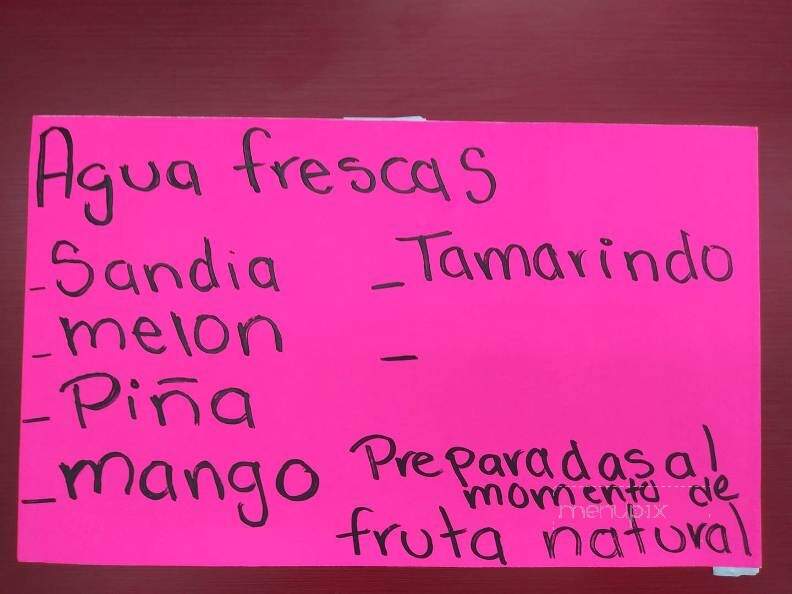 Agua frescas
-Sandia
-melon
-Piña
-mango
-Tamarindo
-
Preparadas al
momento de
fruta natural
menupix